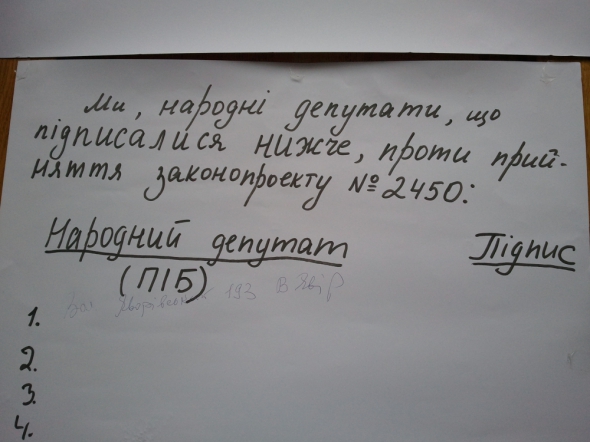 Ми, народні депутати, що
підписалися нижче, проти прий-
няття законопроекту №2450:
Народний депутат Підпис
(ПІБ)
193
1.
2.
3.
4.